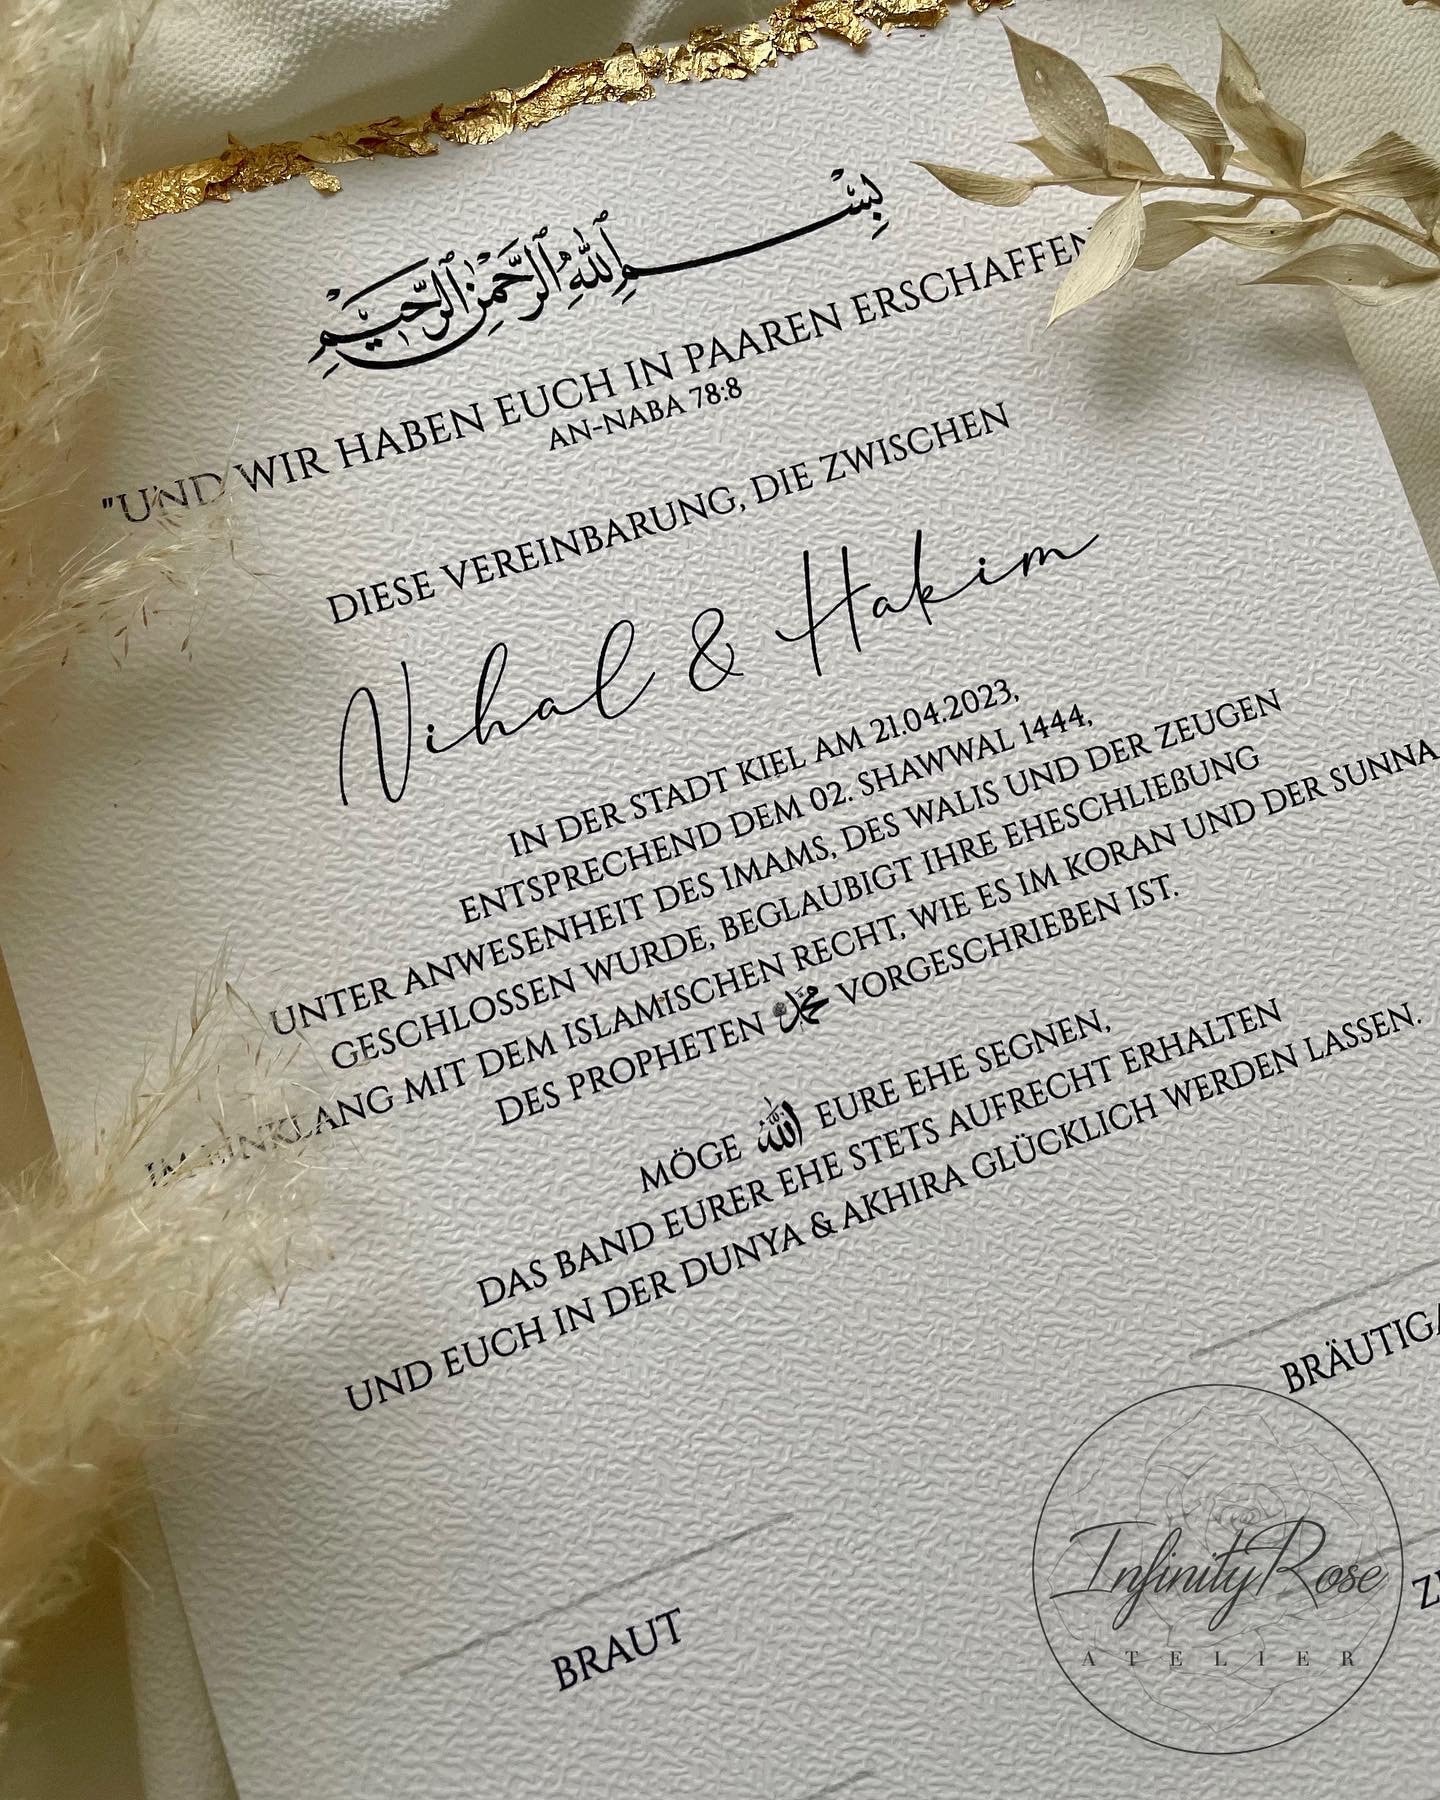 بِسْمِ ٱللَّهِ ٱلرَّحْمَٰنِ ٱلرَّحِيمِ
"UND WIR HABEN EUCH IN PAAREN ERSCHAFFEN
AN-NABA 78:8
DIESE VEREINBARUNG, DIE ZWISCHEN
Nihal & Hakim
IN DER STADT KIEL AM 21.04.2023,
ENTSPRECHEND DEM 02. SHAWWAL 1444,
UNTER ANWESENHEIT DES IMAMS, DES WALIS UND DER ZEUGEN
GESCHLOSSEN WURDE, BEGLAUBIGT IHRE EHESCHLIEßUNG
IM EINKLANG MIT DEM ISLAMISCHEN RECHT, WIE ES IM KORAN UND DER SUNNA
DES PROPHETEN محمد VORGESCHRIEBEN IST.
MÖGE الله EURE EHE SEGNEN,
DAS BAND EURER EHE STETS AUFRECHT ERHALTEN
UND EUCH IN DER DUNYA & AKHIRA GLÜCKLICH WERDEN LASSEN.
BRÄUTIGA
BRAUT
InfinityRose
ATELIER